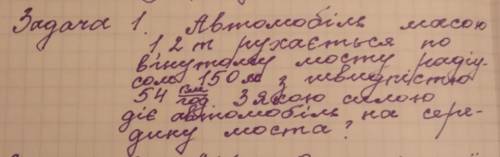 Задача 1. Автомобіль масою
12 т рухається по
вігнутому мосту радіу-
сом 150 м з швидкістю
54 км/год З якою силою
діє автомобіль на сере-
дину моста?